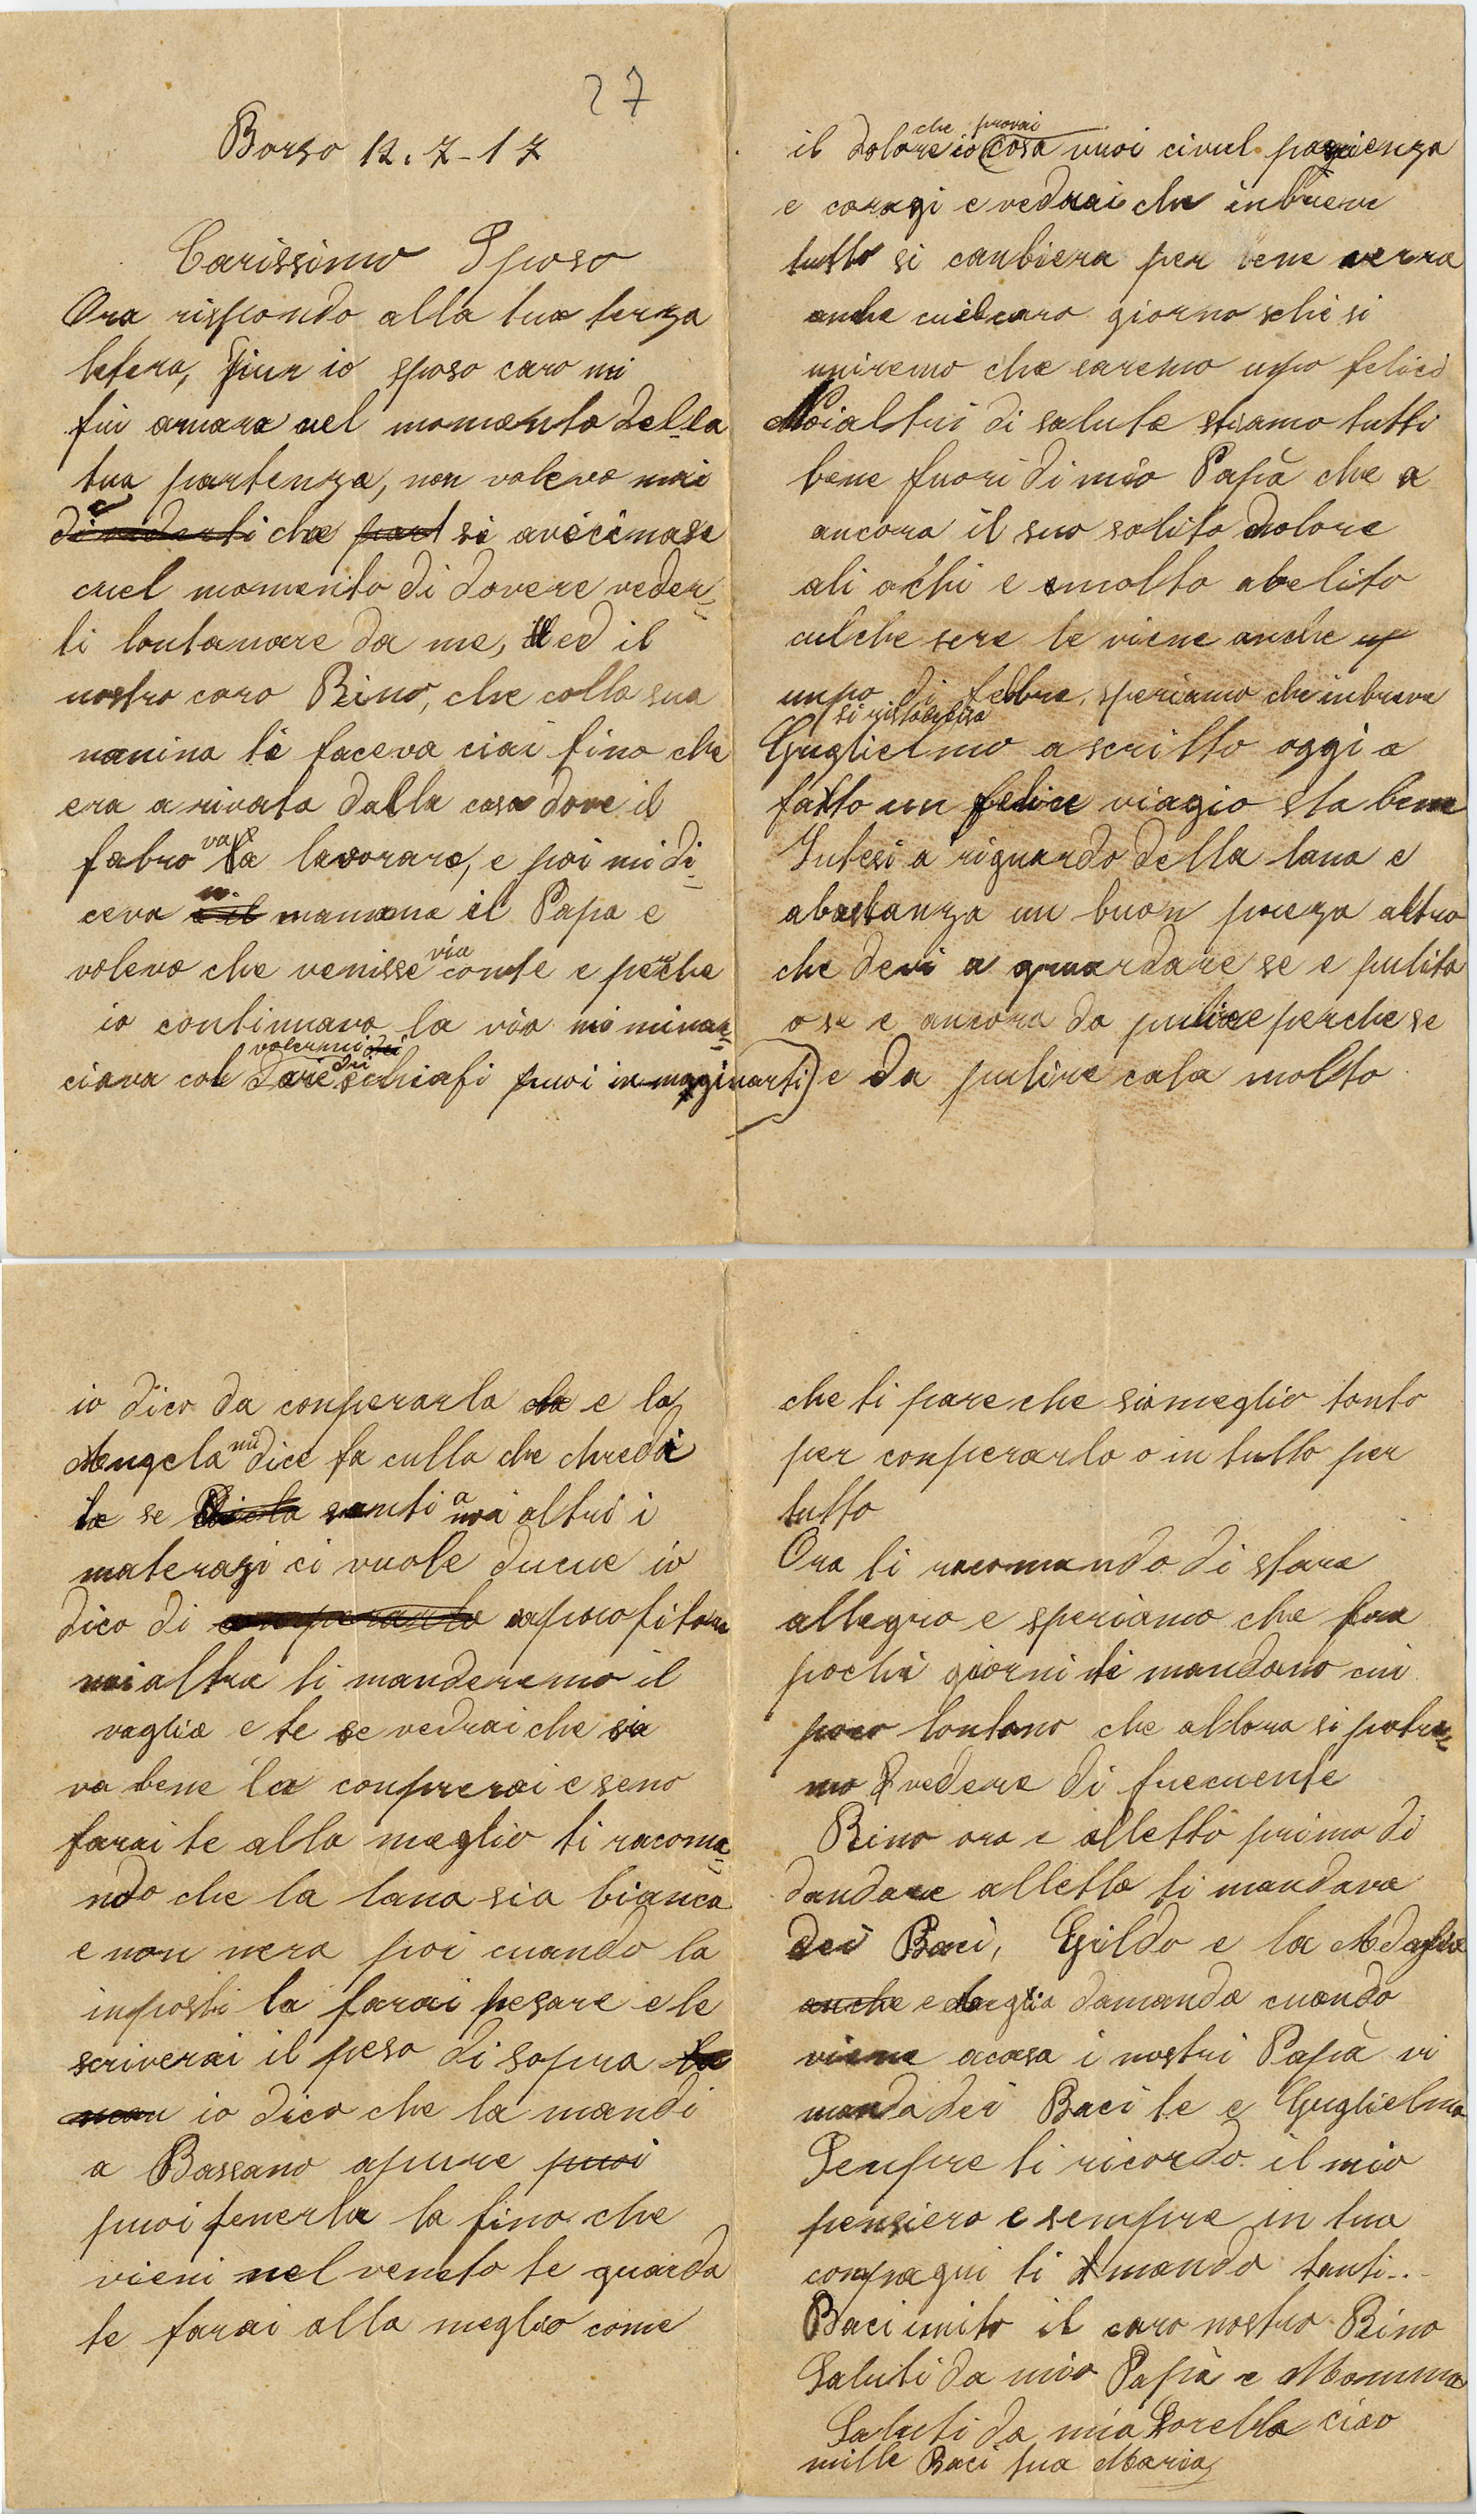 27
Borso 12.7-17
Carissimo Sposo
Ora rispondo alla tua terza
letera, Piur io sposo caro mi
fui amara nel momento della
tua partenza, non voleva mai
che part si avicinase
cuel momento di dovere veder=
ti lontanare da me, ed il
nostro caro Rino, che colla sua
manina ti faceva ciai fino che
era a rivata dalla casa dove il
fabro va la lavorare, e poi mi di=
ceva mamma il Papa e
voleva che venisse via conte e perche
io continuava la via mi minac=
ciava col volermi dare dei schiafi puoi immaginarti
il dolore che provai io cosa vuoi civul pazienza
e coragi e vedrai che inbreve
tutto si canbiera per bene verra
anche cuel caro giorno che si
uniremo che saremo unpo felici
Noialtri di salute stiamo tutti
bene fuori di mio Papà che a
ancora il suo solito dolore
ali ochi e molto abelito
culche sere le viene anche
unpo di febbre, speriamo che inbreve
si ristabilisa
Guglielmo a scritto oggi a
fatto un felice viagio sta bene
Intesi a riguardo della lana e
abastanza un buon prezo altro
che devi a guardare se e pulita
o se e ancora da pulire perche se
e da pulire cala molto
io dico da conperarla e la
Angela mi dice fa culla che chredi
te se santi a noi altri i
materazi ci vuole ducue io
dico di aprofitare
noialtre ti manderemo il
vaglia e te se vedrai che sia
va bene la conprerai e seno
farai te alla meglio ti racoma=
ndo che la lana sia bianca
e non nera poi cuando la
inposti la farai pesare e le
scriverai il peso di sopra
io dico che la mandi
a Bassano apure puoi
puoi tenerla la fino che
vieni nel veneto te guarda
te farai alla meglio come
che ti pare che sia meglio tanto
per conperarla o in tutto per
tutto
Ora ti racomando di stare
allegro e speriamo che fra
pochi giorni ti mandano cui
poco lontano che allora si potre=
mo vedere di frecuente
Rino ora e alletto prima di
dandare alletto ti mandava
dei Baci, Gildo e la Adaglia
anche e damanda cuando
viene acasa i nostri Papà vi
manda dei Baci te e Guglielmo
Senpre ti ricordo il mio
pensiero e sempre in tua
conpagni ti mando tanti...
Baci unito il caro nostro Rino
Saluti da mio Papà e Mamma
Saluti da mia Sorella ciao
mille Baci tua Maria